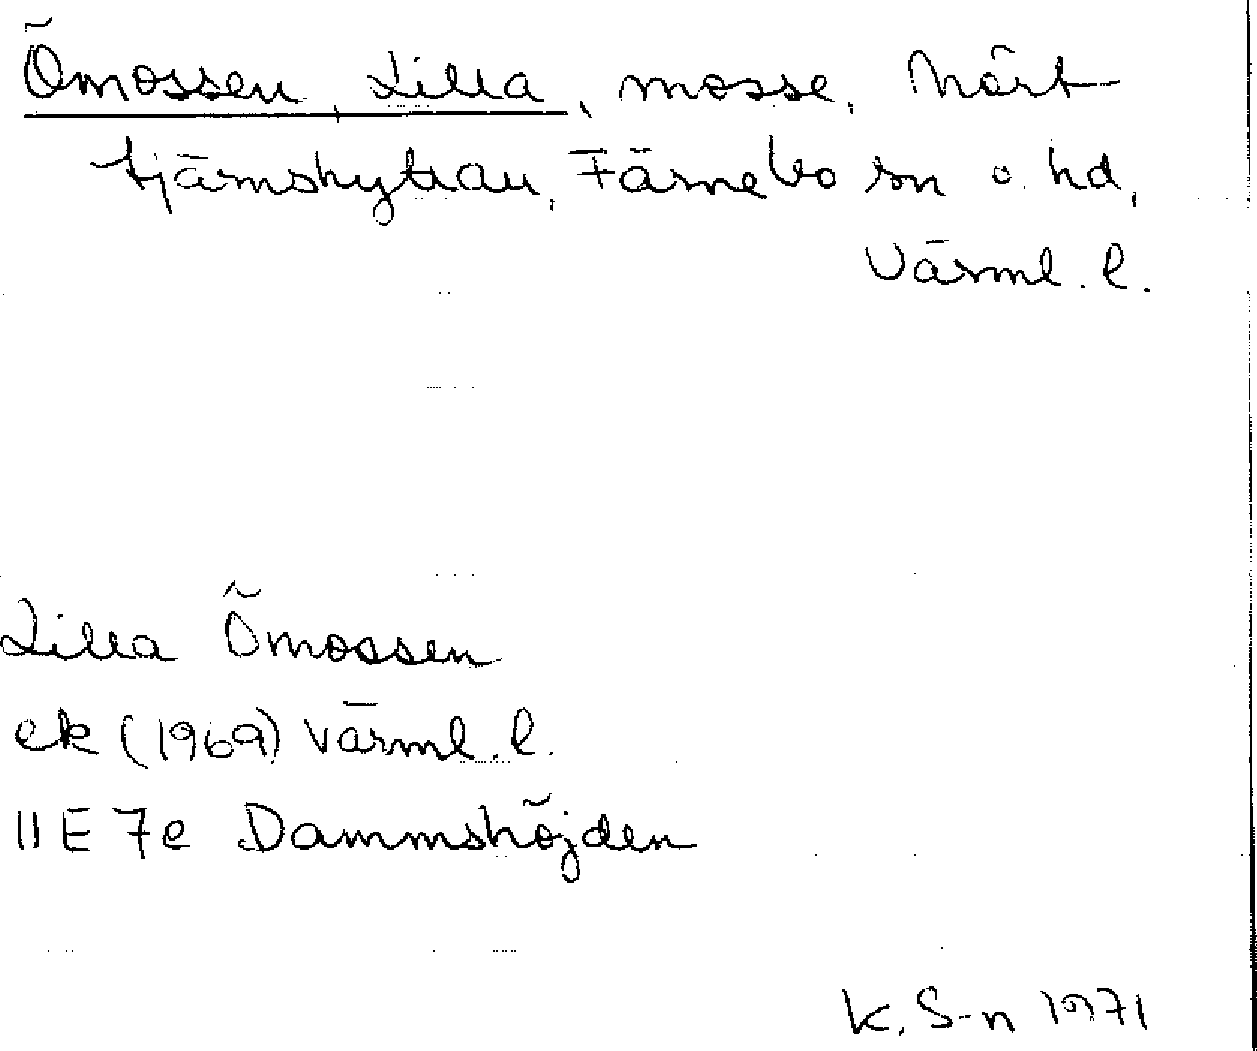 Ömossen, Lilla, mosse, Når-
tjärnshyttan, Färnebo sn o. hd,
Värml. l.
Lilla Ömossen
ek (1969) Värml. l.
11E 7e Dammshöjden
K. S-n 1971